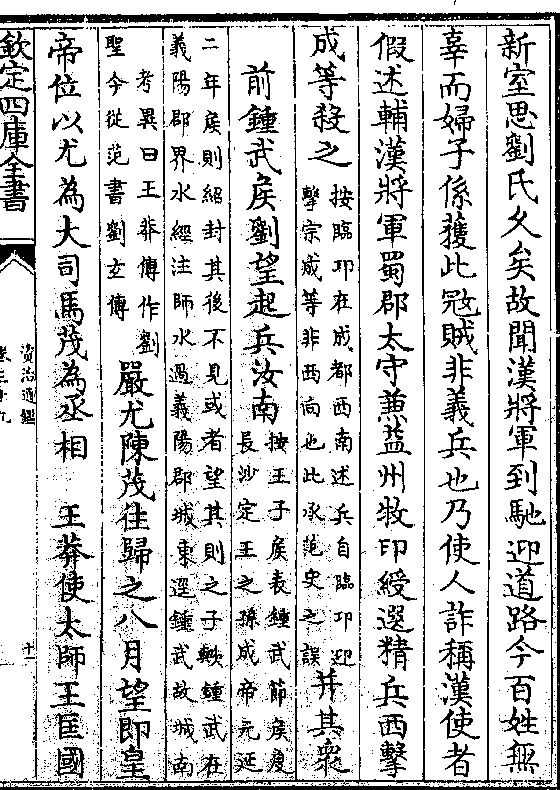 新室思劉氏久矣故聞漢將軍到馳迎道路今百姓無
辜而婦子係獲此寇賊非義兵也乃使人詐稱漢使者
假述輔漢將軍蜀郡太守兼益州牧印綬選精兵西擊
成等殺之
按臨卭在成都西南述兵自臨卭迎
擊宗成等非西向也此承范史之誤
并其衆
前鍾武侯劉望起兵汝南
按王子侯表鍾武節侯度
長沙定王之孫成帝元延
二年侯則紹封其後不見或者望其則之子歟鍾武在
義陽郡界水經注師水過義陽郡城東逕鍾武故城南
考異曰王莽傳作劉
聖今從范書劉玄傳
嚴尤陳茂往歸之八月望即皇
帝位以尤為大司馬茂為丞相　王莽使太師王匡國
欽定四庫全書
資治通鑑
卷三十九
十一